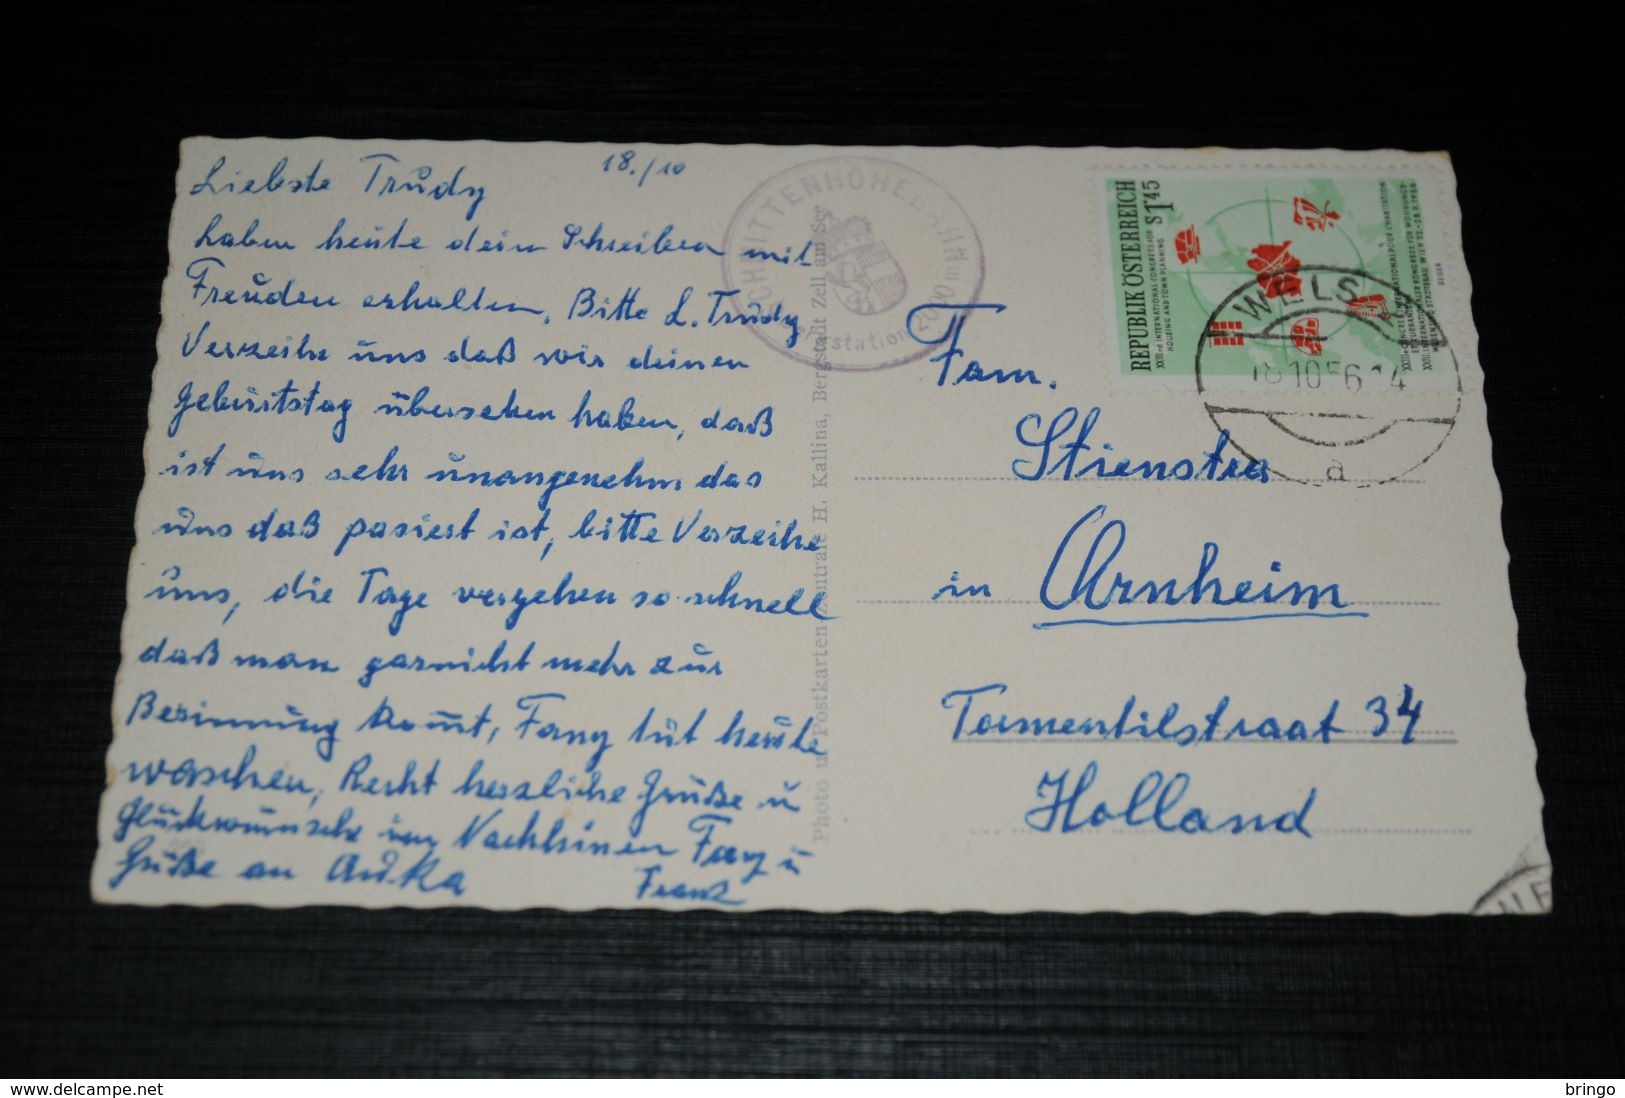 18./10
Liebste Trudy
haben heute dein Schreiben mit
Freuden erhalten. Bitte L. Trudy
Verzeihe uns daß wir deinen
Geburtstag übersehen haben, daß
ist uns sehr unangenehm das
uns daß pasiert ist, bitte Verzeihe
uns, die Tage vergehen so schnell
daß man garnicht mehr zur
Besinnung kommt, Fany tut heute
waschen, Recht herzliche Grüße u
Glückwünsche im Nachhinein Fany u
Grüße an Anka Franz
SCHMITTENHÖHEBAHN
station
Photo u. Postkarten-Zentrale H. Kallina, Bergstadt Zell am See
REPUBLIK ÖSTERREICH
S 1·45
XXIII rd INTERNATIONAL CONGRESS FOR
HOUSING AND TOWN PLANNING
XXIII e CONGRES INTERNATIONAL POUR L'HABITATION
XXIII. INTERNATIONALER KONGRESS FÜR WOHNUNGS-
WESEN UND STÄDTEBAU WIEN 22.-28.7.1956
SEGER
WELS
18.10.56
a
Fam.
Stienstra
in Arnheim
Tormentilstraat 34
Holland
bringo
delcampe.net